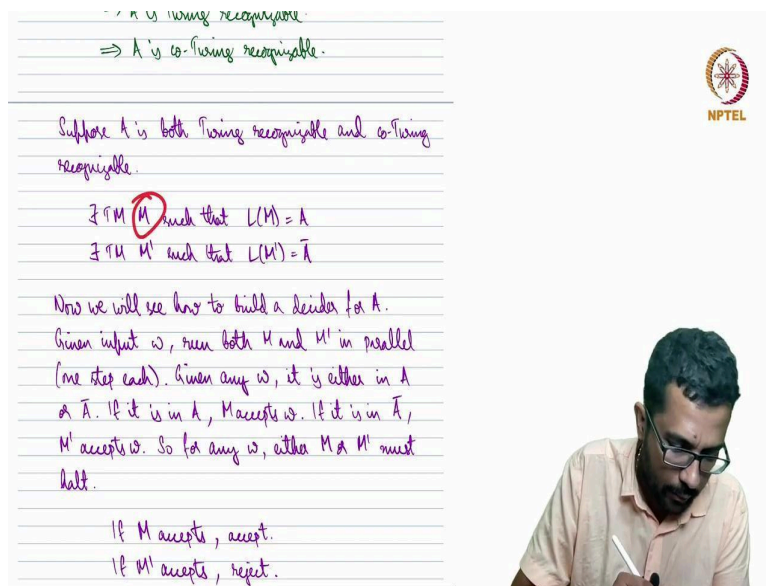 ⇒ A is Turing recognizable.
⇒ A is co-Turing recognizable.
NPTEL
Suppose A is both Turing recognizable and co-Turing
recognizable.
∃ TM M such that L(M) = A
∃ TM M' such that L(M') = Ā
Now we will see how to build a decider for A.
Given input ω, run both M and M' in parallel
(one step each). Given any ω, it is either in A
or Ā. If it is in A, M accepts ω. If it is in Ā,
M' accepts ω. So for any ω, either M or M' must
halt.
If M accepts, accept.
If M' accepts, reject.